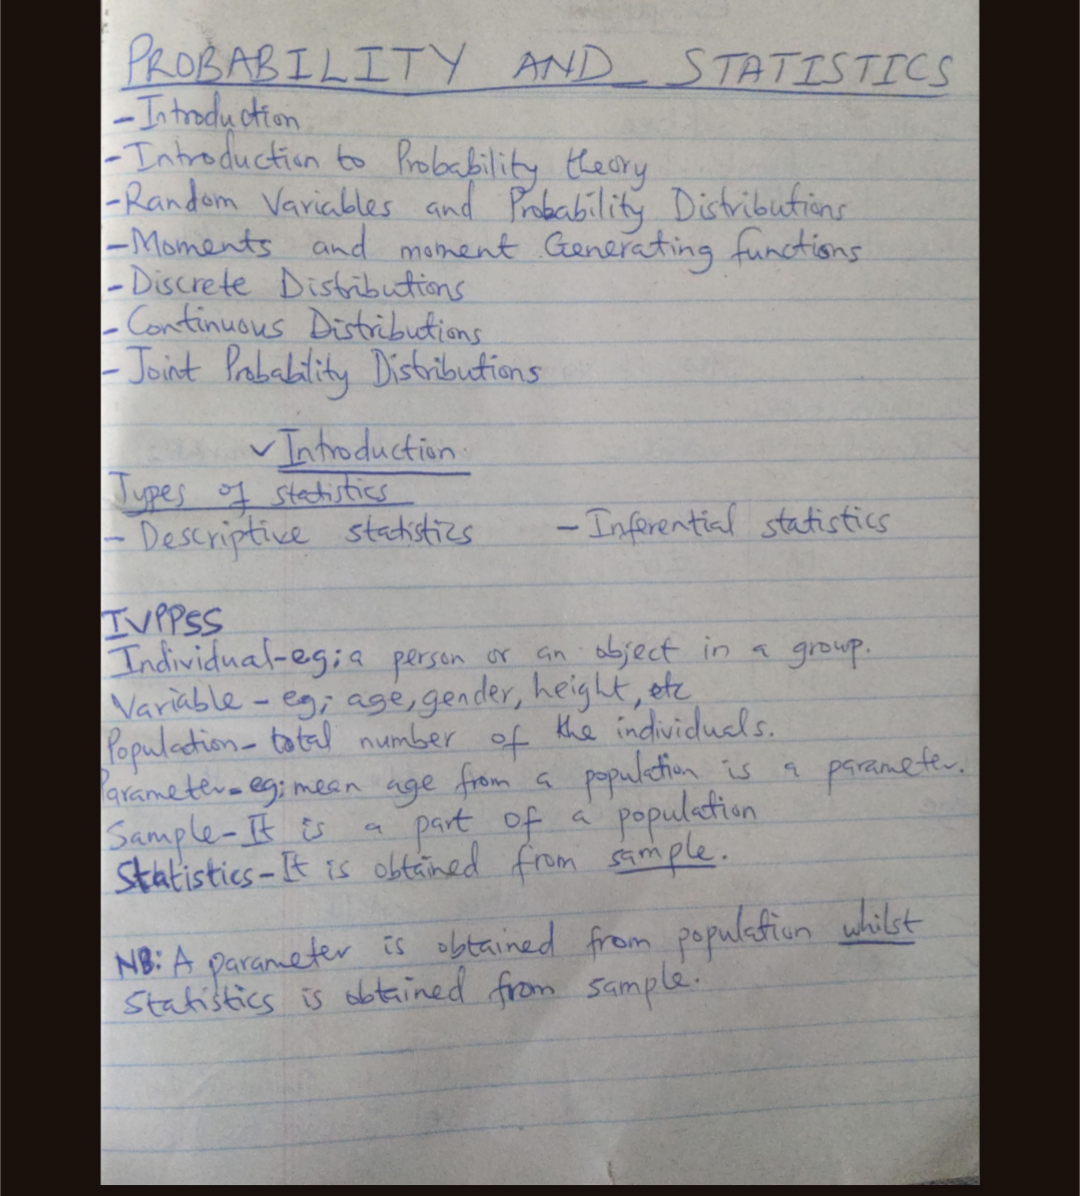 PROBABILITY AND STATISTICS
- Introduction
- Introduction to Probability theory
- Random Variables and Probability Distributions
- Moments and moment Generating functions
- Discrete Distributions
- Continuous Distributions
- Joint Probability Distributions
✓ Introduction
Types of statistics
- Descriptive statistics - Inferential statistics
IVPPSS
Individual-eg; a person or an object in a group.
Variable - eg; age, gender, height, etc
Population- total number of the individuals.
Parameter- eg; mean age from a population is a parameter.
Sample- It is a part of a population
Statistics- It is obtained from sample.
NB: A parameter is obtained from population whilst
Statistics is obtained from sample.